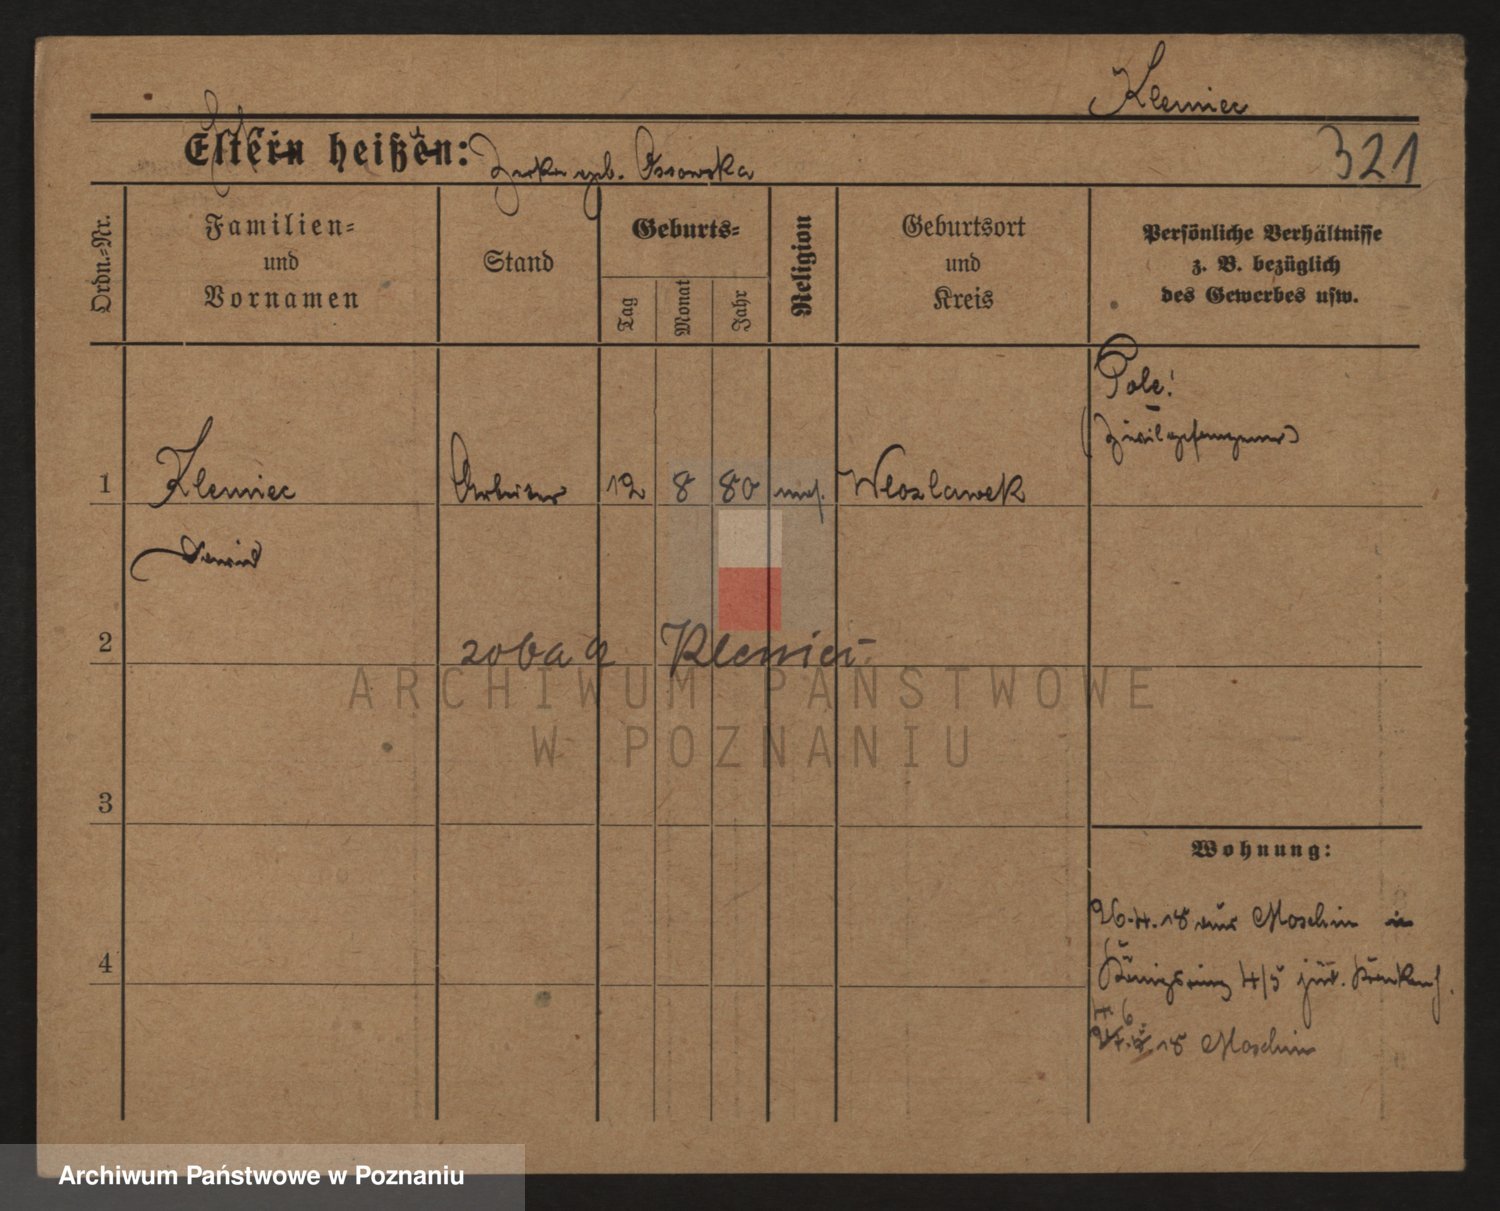 Klemiec
Eltern heißen: geb. Ossowska
321
Ordn.-Nr.
Familien-
und
Vornamen
Stand
Geburts-
Tag
Monat
Jahr
Religion
Geburtsort
und
Kreis
Persönliche Verhältnisse
z. B. bezüglich
des Gewerbes usw.
Pole!
(Zivilgefangener)
1 Klemiec Arbeiter 12 8 80 mos. Wloclawek
Dawid
2
ARCHIWUM PAŃSTWOWE
W POZNANIU
3
Wohnung:
26.4.18 aus Moschin
4
Königsring 4/5 jüd. Krankenh.
18 Moschin
Archiwum Państwowe w Poznaniu